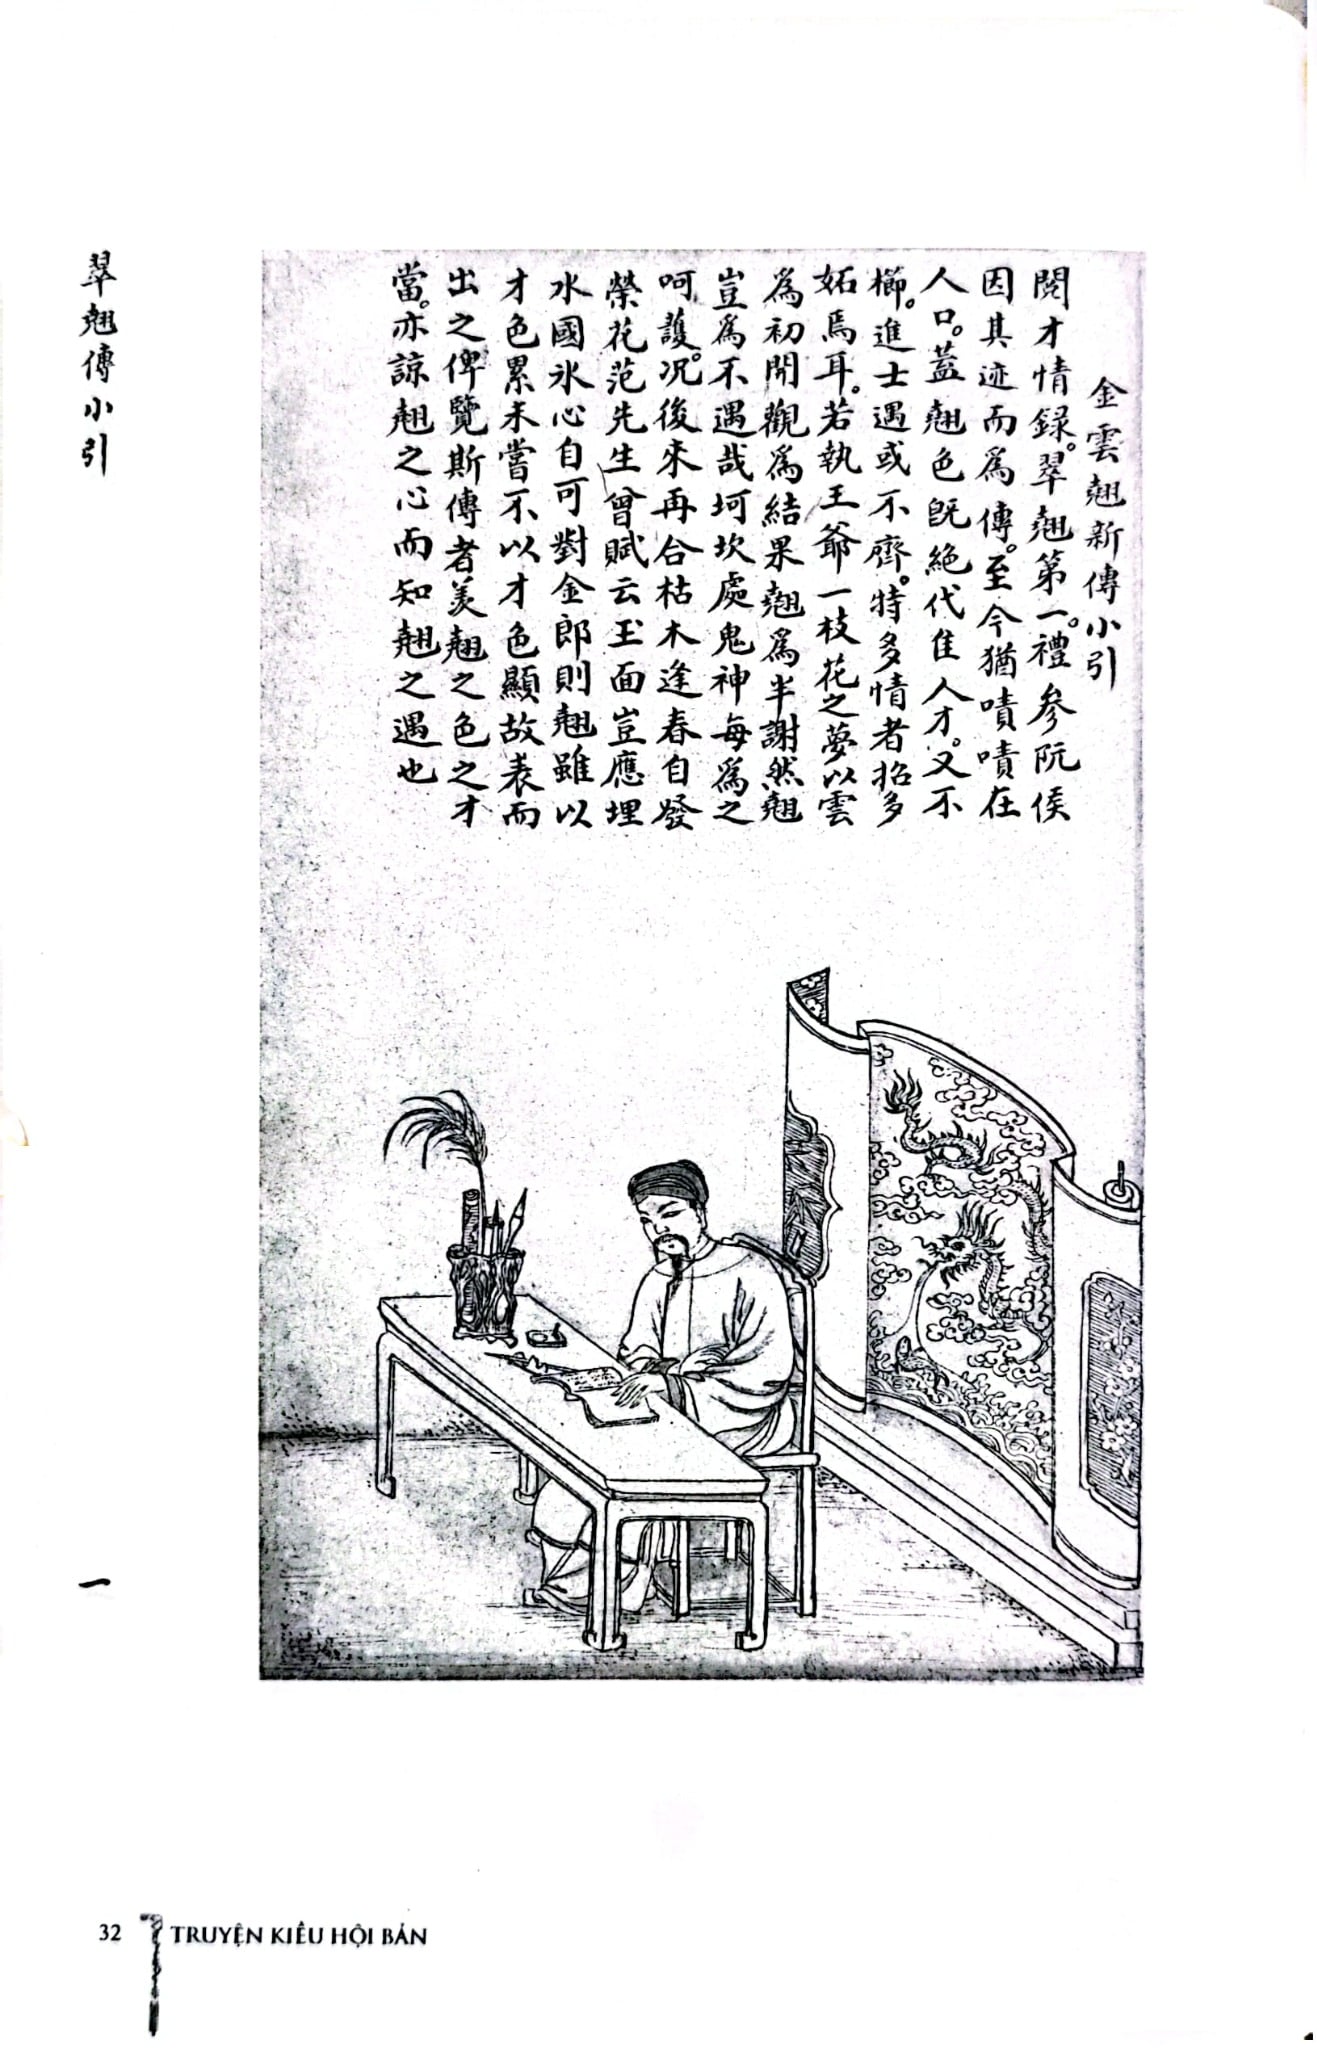 金雲翹新傳小引
閱才情録。翠翹第一。禮參阮侯
因其迹而爲傳。至今猶嘖嘖在
人口。蓋翹色既絶代佳人才。又不
櫛。進士遇或不齊。特多情者招多
妬焉耳。若執王爺一枝花之夢以雲
爲初開觀爲結果翹爲半謝然翹
豈爲不遇哉坷坎處鬼神每爲之
呵護。况後來再合枯木逢春自發
榮花范先生曾賦云玉面豈應埋
水國氷心自可對金郎則翹雖以
才色累未嘗不以才色顯故表而
出之俾覽斯傳者羙翹之色之才
當。亦諒翹之心而知翹之遇也
翠翹傳小引
一
32
TRUYỆN KIỀU HỘI BẢN